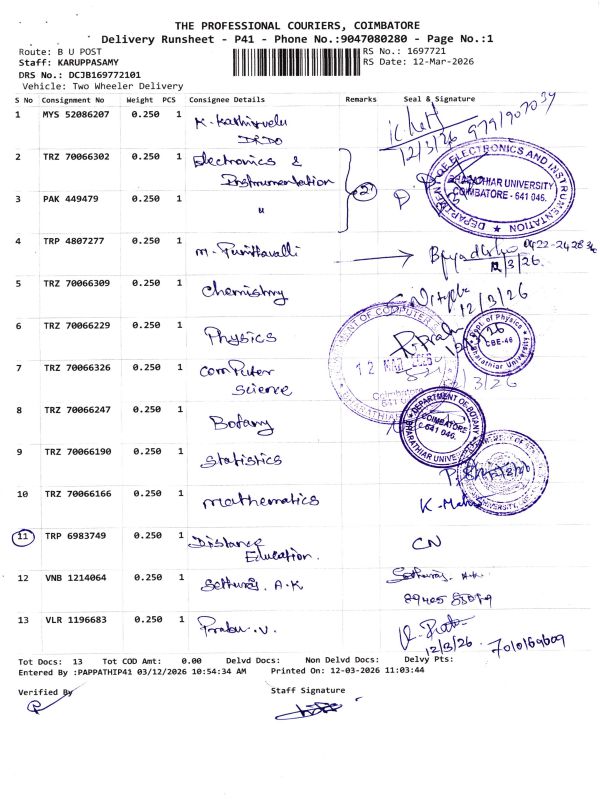 THE PROFESSIONAL COURIERS, COIMBATORE
Delivery Runsheet - P41 - Phone No.:9047080280 - Page No.:1
Route: B U POST
RS No.: 1697721
Staff: KARUPPASAMY
RS Date: 12-Mar-2026
DRS No.: DCJB169772101
Vehicle: Two Wheeler Delivery
S No Consignment No Weight PCS Consignee Details Remarks Seal & Signature
1 MYS 52086207 0.250 1 K. Kathirvelu
DRDO
12/3/26 9791907034
2 TRZ 70066302 0.250 1 Electronics &
Instrumentation
2
DEPARTMENT OF ELECTRONICS AND INSTRUMENTATION
BHARATHIAR UNIVERSITY
COIMBATORE - 641 046.
3 PAK 449479 0.250 1 "
4 TRP 4807277 0.250 1 M. Punithavalli
12/3/26.
5 TRZ 70066309 0.250 1 Chemistry
12/3/26
6 TRZ 70066229 0.250 1 Physics
Dept. of Physics
CBE-46
Bharathiar University
7 TRZ 70066326 0.250 1 Computer
Science
DEPARTMENT OF COMPUTER
12 MAR 2026
Coimbatore
8 TRZ 70066247 0.250 1 Botany
DEPARTMENT OF BOTANY
COIMBATORE
641 046.
BHARATHIAR UNIVERSITY
9 TRZ 70066190 0.250 1 Statistics
10 TRZ 70066166 0.250 1 Mathematics
11 TRP 6983749 0.250 1 Distance
Education.
CN
12 VNB 1214064 0.250 1 Sethuraj. A.K
Sethuraj. A.K.
13 VLR 1196683 0.250 1 Prabu. V.
12/3/26.
Tot Docs: 13 Tot COD Amt: 0.00 Delvd Docs: Non Delvd Docs: Delvy Pts:
Entered By :PAPPATHIP41 03/12/2026 10:54:34 AM Printed On: 12-03-2026 11:03:44
Verified By
Staff Signature